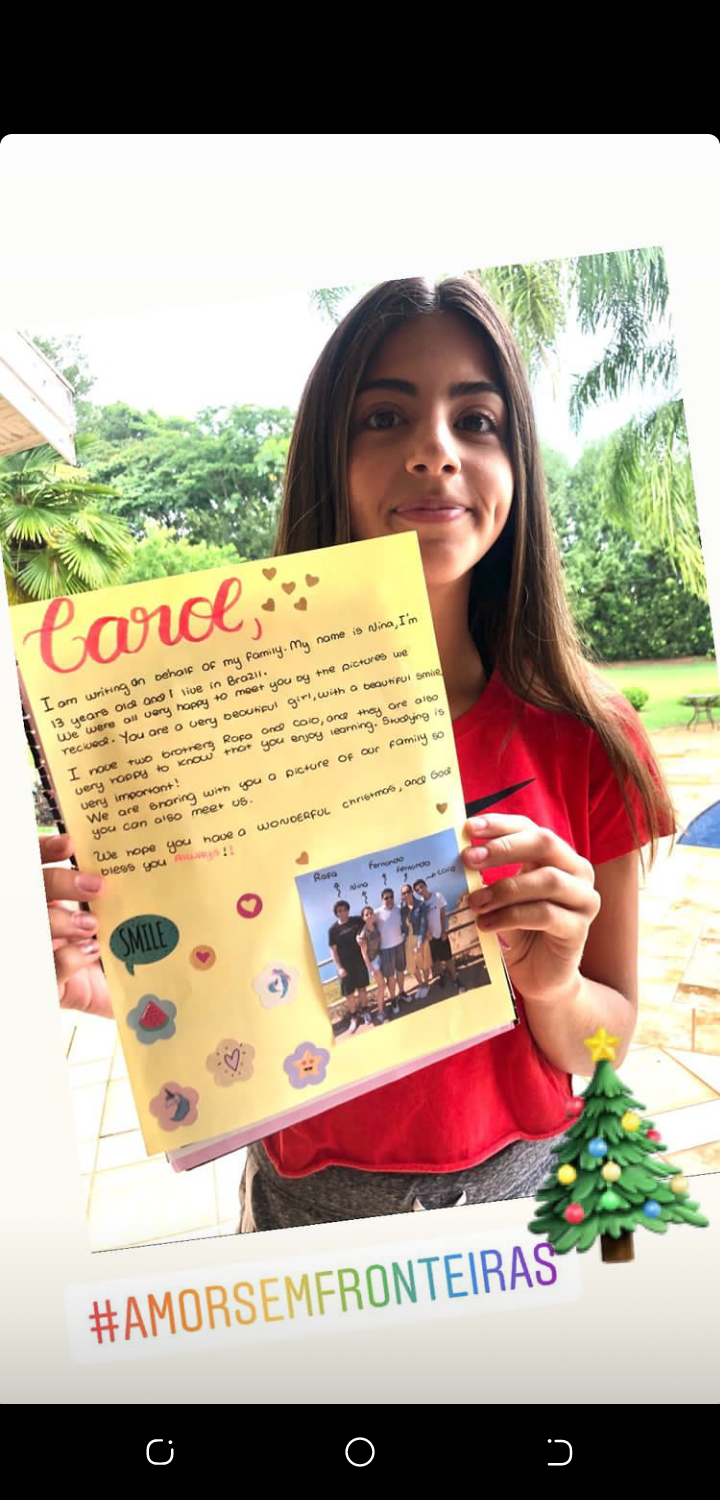 Carol,
I am writing on behalf of my family. My name is Nina, I'm
13 years old and I live in Brazil.
We were all very happy to meet you by the pictures we
recived. You are a very beautiful girl, with a beautiful smile.
I have two brothers Rafa and Caio, and they are also
very happy to know that you enjoy learning. Studying is
very important!
We are sharing with you a picture of our family so
you can also meet us.
We hope you have a WONDERFUL christmas, and God
bless you ALWAYS!!
Rafa
Nina
Fernando
Fernanda
Caio
SMILE
#AMORSEMFRONTEIRAS